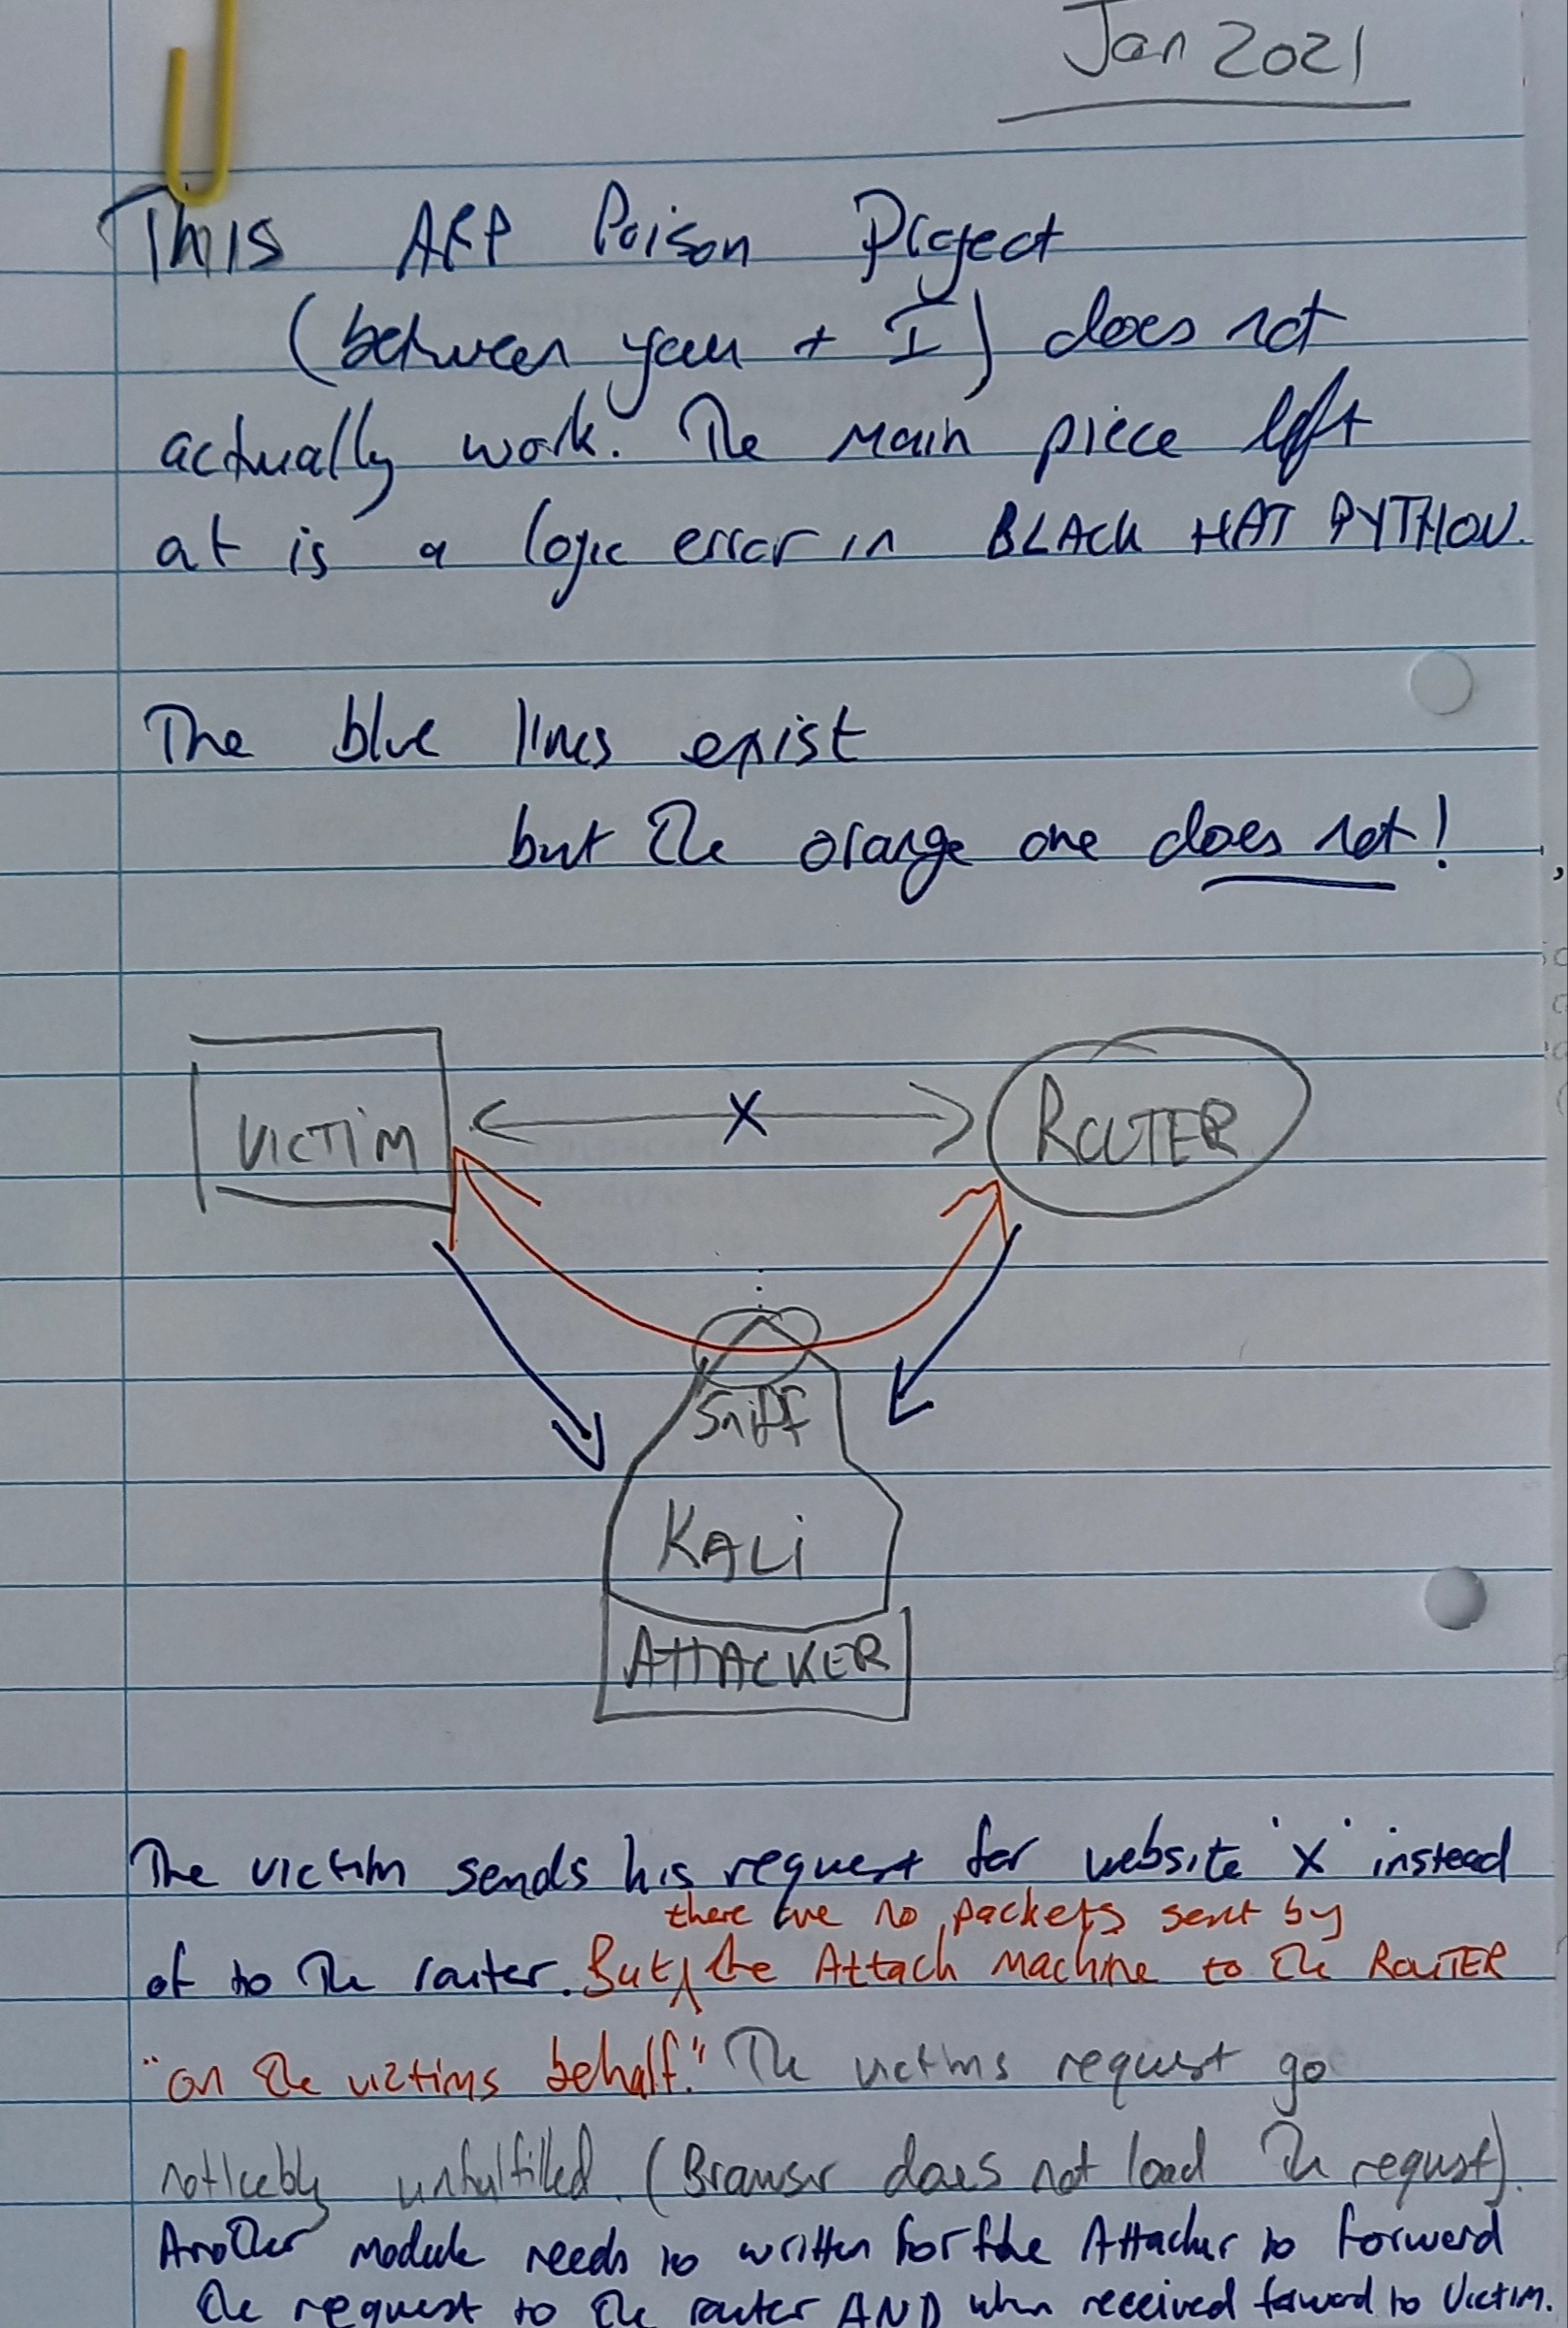 Jan 2021
This ARP Poison Project
(between you + I) does not
actually work. The main piece left
at is a logic error in BLACK HAT PYTHON.
The blue lines exist
but the orange one does not!
VICTIM
X
ROUTER
Sniff
KALi
ATTACKER
The victim sends his request for website 'X' instead
there are no packets sent by
of to the router. But the Attach Machine to the ROUTER
"on the victims behalf." The victims request go
noticebly unfulfilled. (Browser does not load the request).
Another module needs to written for the Attacker to forward
the request to the router AND when received forward to Victim.